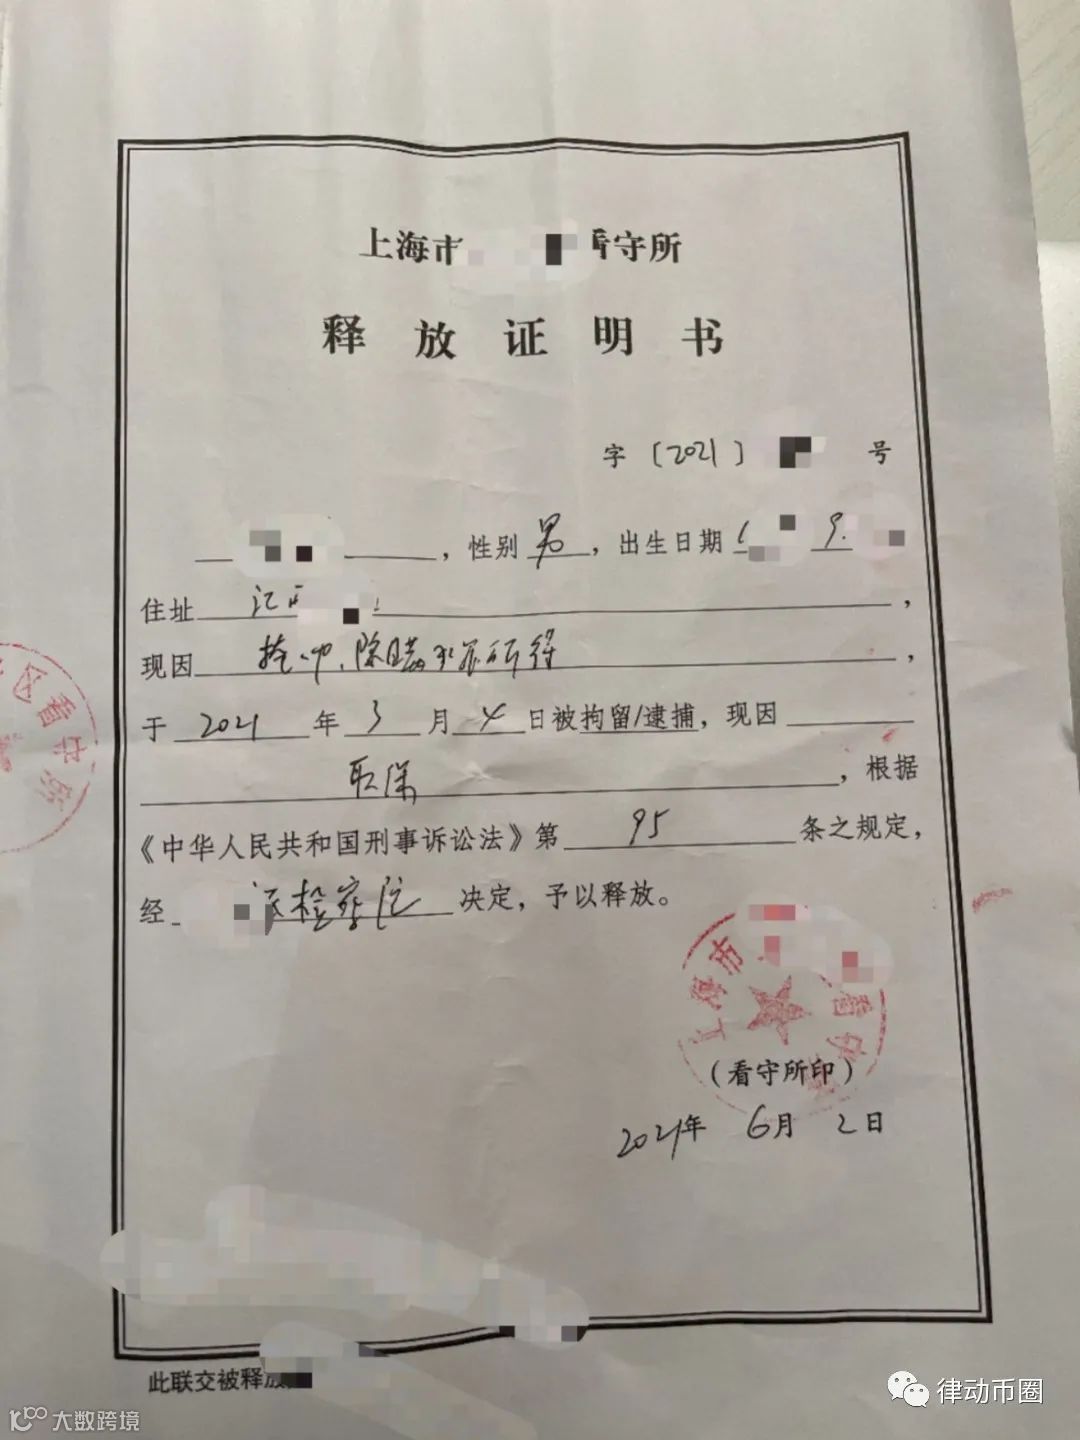 上海市 看守所
释放证明书
字〔2021〕 号
，性别 男 ，出生日期 9.
住址 江 ，
现因 掩饰、隐瞒犯罪所得 ，
于 2021 年 3 月 4 日被拘留/逮捕，现因
取保 ，根据
《中华人民共和国刑事诉讼法》第 95 条之规定，
经 检察院 决定，予以释放。
上海市 看守所
（看守所印）
2021年 6月 2日
区看守所
此联交被释放
律动币圈
大数跨境